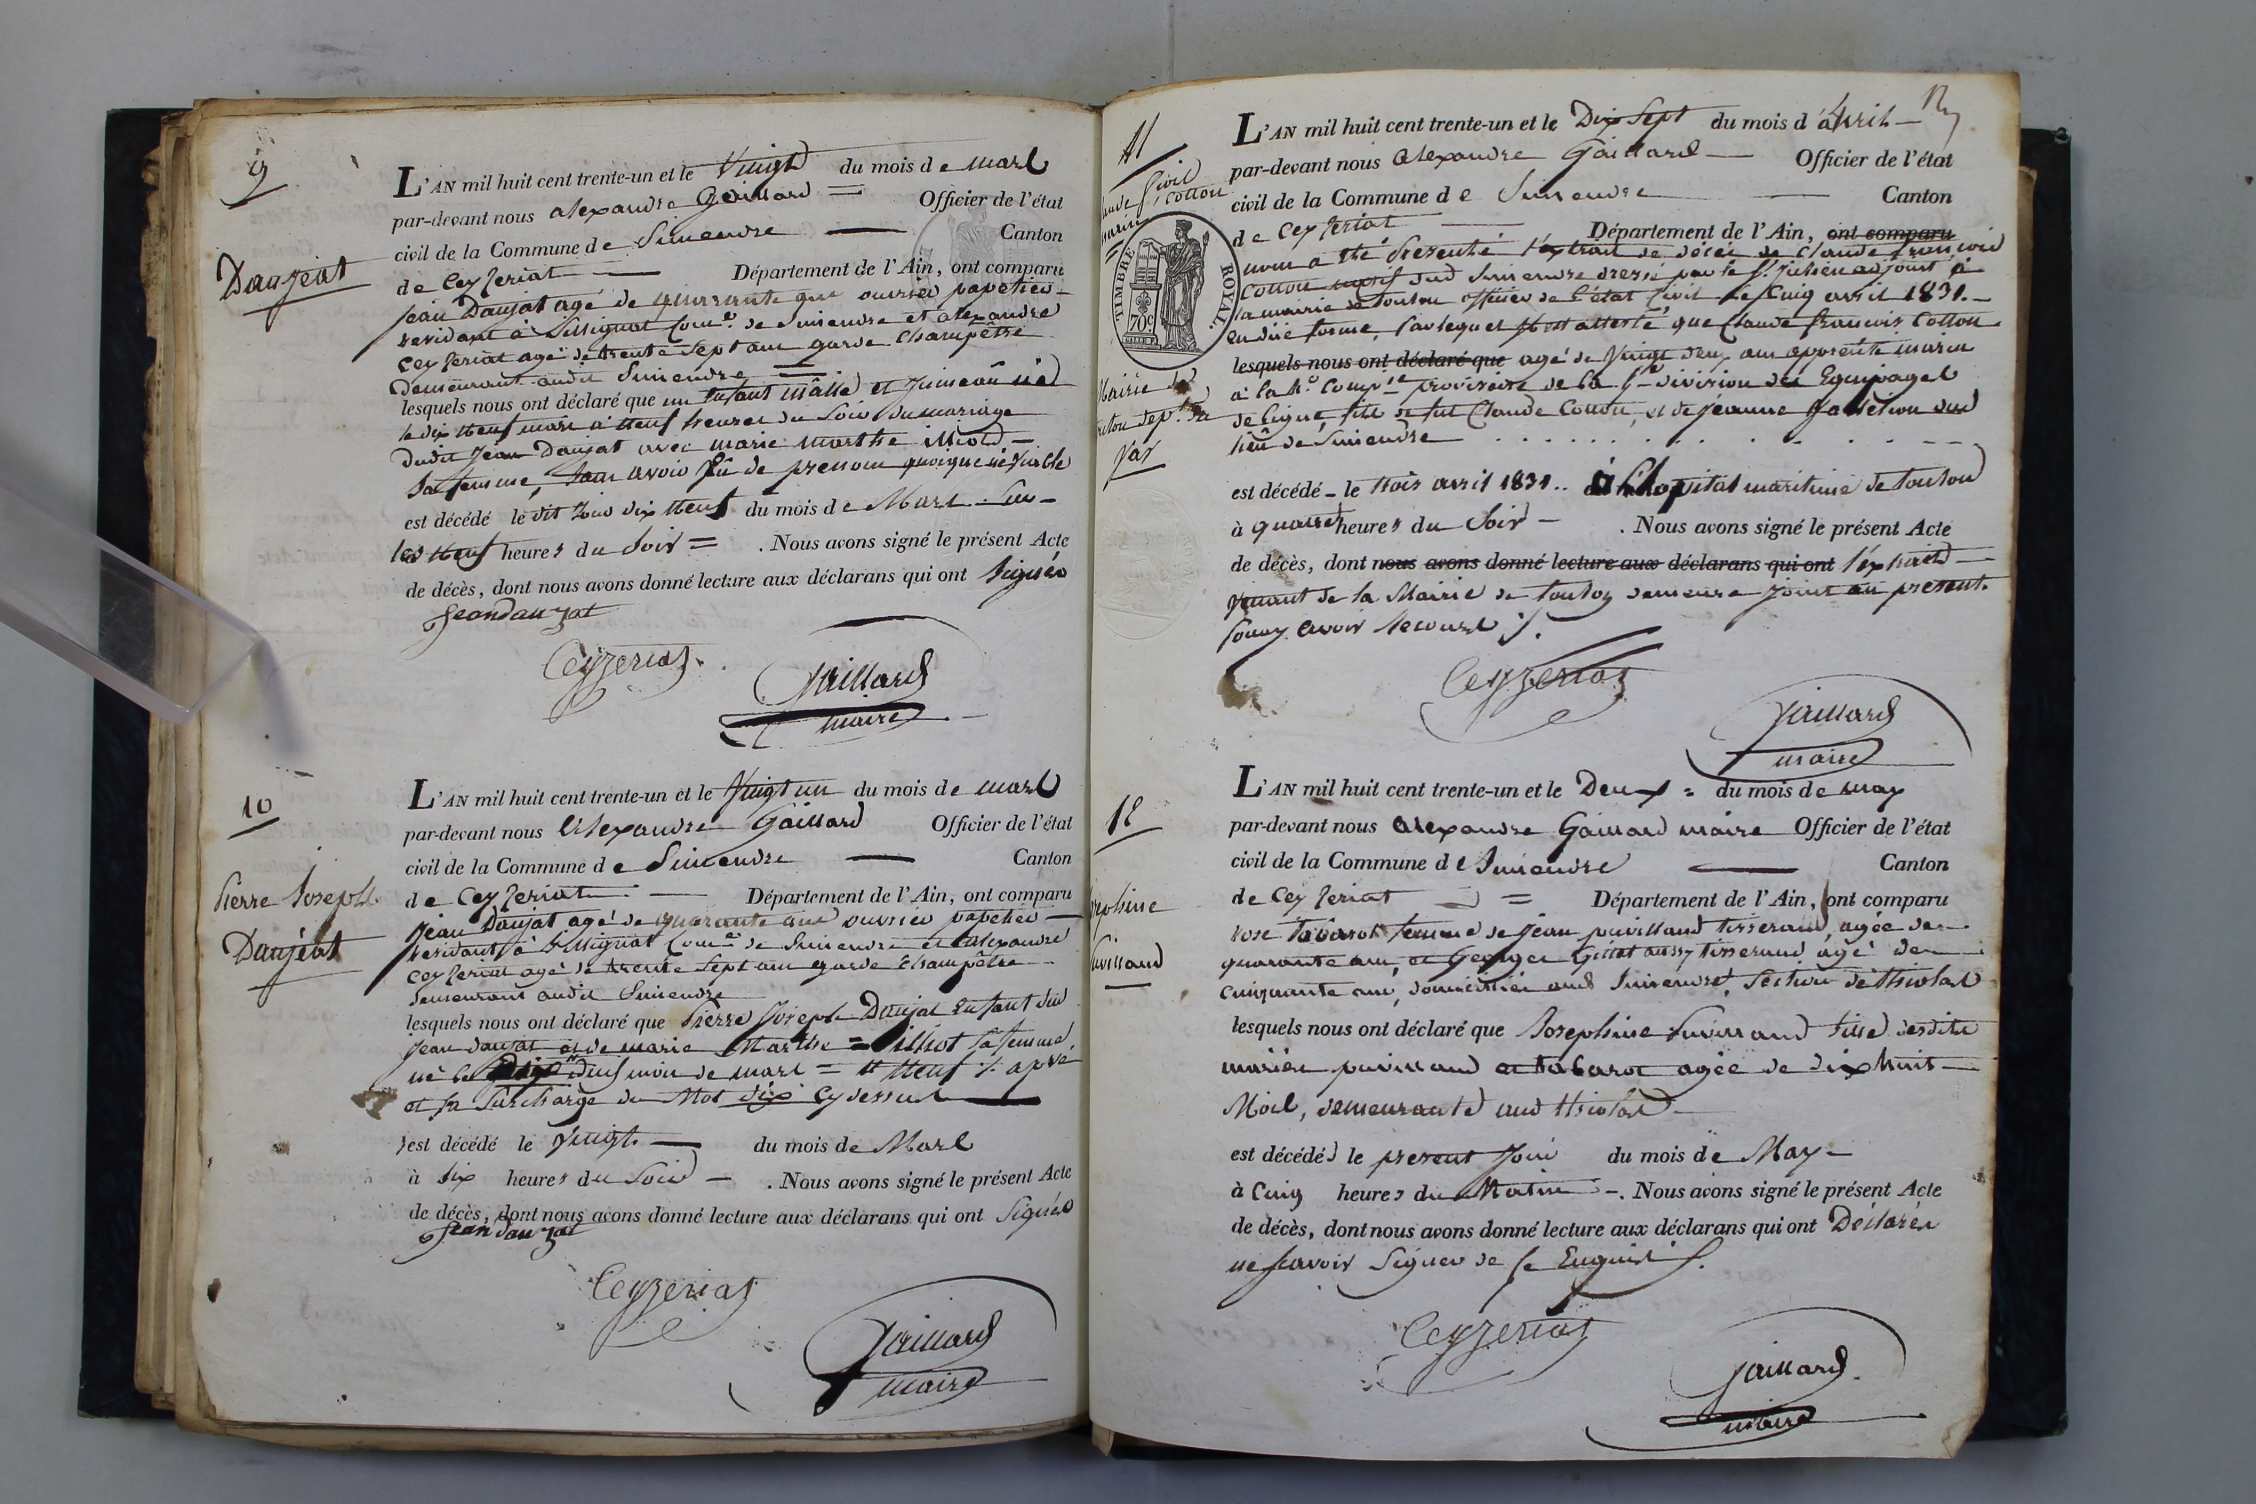 9
Daujeat
L'AN mil huit cent trente-un et le Vingt du mois de mars
par-devant nous alexandre Gaillard = Officier de l'état
civil de la Commune de Simandre — Canton
de Ceyzeriat — Département de l'Ain, ont comparu
jean Daujat agé de quarante ans ouvrier papetier
residant à Sillignat Comne. de Simandre et alexandre
Ceyzeriat agé de trente sept ans garde champêtre
demeurant audit Simandre
lesquels nous ont déclaré que un Enfant mâsle et jumeau né
le dix neuf mars à neuf heures du soir du mariage
dudit jean Daujat avec marie marthe
sa femme, sans avoir de prenom quoique né viable
est décédé le dit jour dix neuf du mois de Mars Sur
les neuf heures du Soir = . Nous avons signé le présent Acte
de décès, dont nous avons donné lecture aux déclarans qui ont signés
Jean dauzat
Ceyzeriat
Gaillard
maire
10
Pierre Joseph
Daujeat
L'AN mil huit cent trente-un et le Vingt un du mois de mars
par-devant nous Alexandre Gaillard Officier de l'état
civil de la Commune de Simandre — Canton
de Ceyzeriat — Département de l'Ain, ont comparu
jean Daujat agé de quarante ans ouvrier papetier —
residant à Sillignat Comne. de Simandre et alexandre
Ceyzeriat agé de trente sept ans garde champêtre
demeurant audit Simandre
lesquels nous ont déclaré que Pierre Joseph Daujat enfant dud
jean daujat et de marie Marthe = sa femme,
né le neuf mois de mars =
et la surcharge du Mot dix cy dessus
est décédé le Vingt — du mois de Mars
à Six heures du Soir — . Nous avons signé le présent Acte
de décès, dont nous avons donné lecture aux déclarans qui ont Signés
Jean dauzat
Ceyzeriat
Gaillard
maire
12
11
Cotton
TIMBRE ROYAL.
70c
L'AN mil huit cent trente-un et le Dix Sept du mois d'avril —
par-devant nous alexandre Gaillard — Officier de l'état
civil de la Commune de Simandre — Canton
de Ceyzeriat — Département de l'Ain, ont comparu
nous a été presenté l'extrait de décès de Claude françois
Cotton natif dud Simandre dressé par le Sr. julien adjoint à
la mairie de toulon officier de l'état Civil le Cinq avril 1831. —
en due forme, par lequel il est attesté que Claude francois Cotton
lesquels nous ont déclaré que agé de Vingt deux ans apprenti marin
à la 4e Compie provisoire de la 1re division des Equipages
de ligne, fils de fut Claude Cotton, et de jeanne dud
lieu de Simandre
Mairie de
toulon dept. du
Var
est décédé le trois avril 1831.. à l'hopital maritime de toulon
à quatre heures du Soir — . Nous avons signé le présent Acte
de décès, dont nous avons donné lecture aux déclarans qui ont l'extrait —
venant de la Mairie de toulon demeure joint au present.
pour y avoir recours ./.
Ceyzeriat
Gaillard
maire
12
josephine
Puvilland
L'AN mil huit cent trente-un et le Deux = du mois de may
par-devant nous Alexandre Gaillard maire Officier de l'état
civil de la Commune de Simandre — Canton
de Ceyzeriat = Département de l'Ain, ont comparu
rose tabarot femme de jean puvilland tisserand, agée de
quarante ans, et George Gillet aussy tisserand agé de
cinquante ans, domiciliés aud Simandre, Section de
lesquels nous ont déclaré que Josephine Puvilland fille desdits
mariés puvilland et tabarot agée de dix huit —
Mois, demeurante aud
est décédé le present jour du mois de May =
à Cinq heures du Matin — . Nous avons signé le présent Acte
de décès, dont nous avons donné lecture aux déclarans qui ont Déclarés
ne scavoir signer de ce Enquis ./.
Ceyzeriat
Gaillard
maire